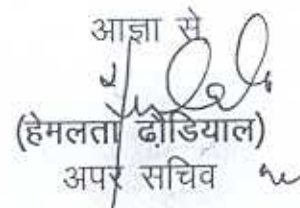 आज्ञा से
(हेमलता ढ़ौंडियाल)
अपर सचिव